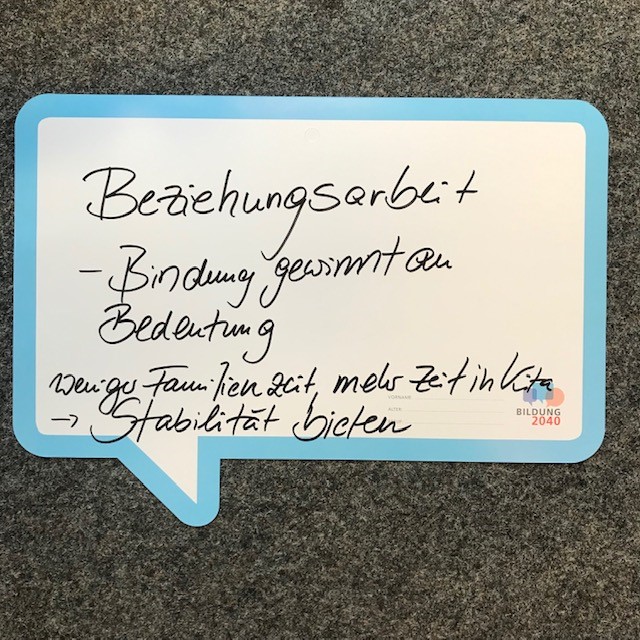 Beziehungsarbeit
- Bindung gewinnt an
Bedeutung
weniger Familienzeit, mehr Zeit in Kita
→ Stabilität bieten
VORNAME
ALTER
BILDUNG
2040